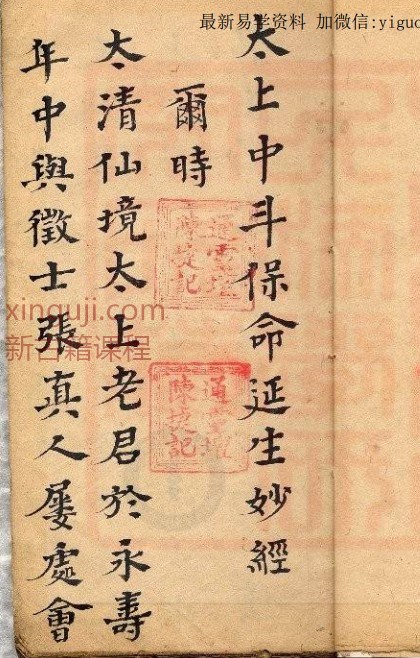 最新易学资料 加微信:yiguo
太上中斗保命延生妙經
爾時
太清仙境太上老君於永壽
年中與徵士張真人屢處會
通雷壇
陳捉記
通雷壇
陳捉記
xinguji.com
新古籍课程